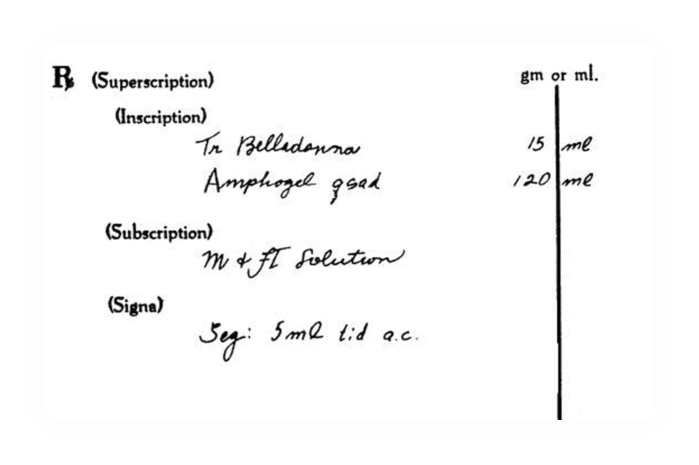 ℞ (Superscription) gm or ml.
(Inscription)
Tr Belladonna 15 ml
Amphogel qsad 120 ml
(Subscription)
M & ft Solution
(Signa)
Seg: 5 ml tid a.c.